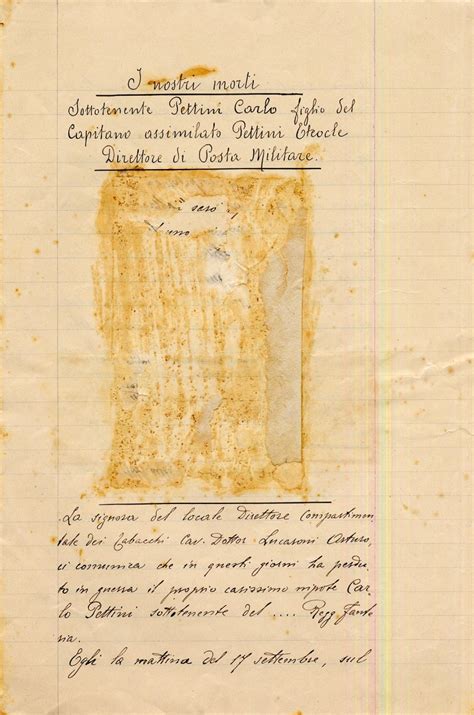 I nostri morti
Sottotenente Pettini Carlo figlio del
Capitano assimilato Pettini Eteocle
Direttore di Posta Militare.
La signora del locale Direttore Compartimen
tale dei Tabacchi Cav. Dottor Lucaroni Arturo,
ci comunica che in questi giorni ha perdu
to in guerra il proprio carissimo nipote Car
lo Pettini sottotenente del .... Regg. Fante
ria.
Egli la mattina del 17 settembre, sul